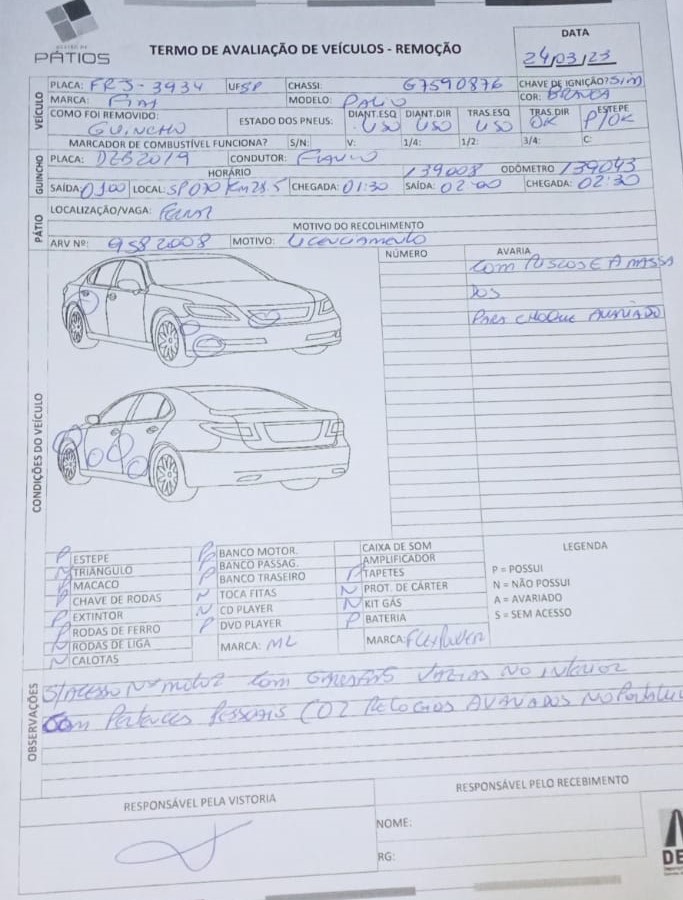 PÁTIOS
TERMO DE AVALIAÇÃO DE VEÍCULOS - REMOÇÃO
DATA
24/03/23
VEÍCULO
PLACA: FRJ-3934 UF SP CHASSI: G7590876 CHAVE DE IGNIÇÃO? SIM
MARCA: Fiat MODELO: PALIO COR: BRANCA
COMO FOI REMOVIDO: GUINCHO ESTADO DOS PNEUS: DIANT.ESQ USO DIANT.DIR USO TRAS.ESQ USO TRAS.DIR OK ESTEPE P/OK
MARCADOR DE COMBUSTÍVEL FUNCIONA? S/N: V: 1/4: 1/2: 3/4: C:
GUINCHO
PLACA: DEB2019 CONDUTOR: FLAVIO
HORÁRIO 139008 ODÔMETRO 139043
SAÍDA: 0100 LOCAL: SP070 Km28.5 CHEGADA: 01:30 SAÍDA: 02:00 CHEGADA: 02:30
PÁTIO
LOCALIZAÇÃO/VAGA:
MOTIVO DO RECOLHIMENTO
ARV Nº: 9582008 MOTIVO: Licenciamento
CONDIÇÕES DO VEÍCULO
NÚMERO AVARIA
COM RISCOS E AMASSA
DOS
PARA CHOQUE AVARIADO
P ESTEPE
N TRIÂNGULO
P MACACO
P CHAVE DE RODAS
P EXTINTOR
P RODAS DE FERRO
N RODAS DE LIGA
N CALOTAS
P BANCO MOTOR.
P BANCO PASSAG.
P BANCO TRASEIRO
N TOCA FITAS
N CD PLAYER
P DVD PLAYER
MARCA: ML
CAIXA DE SOM
AMPLIFICADOR
P TAPETES
N PROT. DE CÁRTER
N KIT GÁS
P BATERIA
MARCA:
LEGENDA
P = POSSUI
N = NÃO POSSUI
A = AVARIADO
S = SEM ACESSO
OBSERVAÇÕES
S/ACESSO Nº motor com VAZIAS NO interior
Com Pertences Pessoais (02 RELOGIOS AVARIADOS NO
RESPONSÁVEL PELA VISTORIA
RESPONSÁVEL PELO RECEBIMENTO
NOME:
RG:
DE